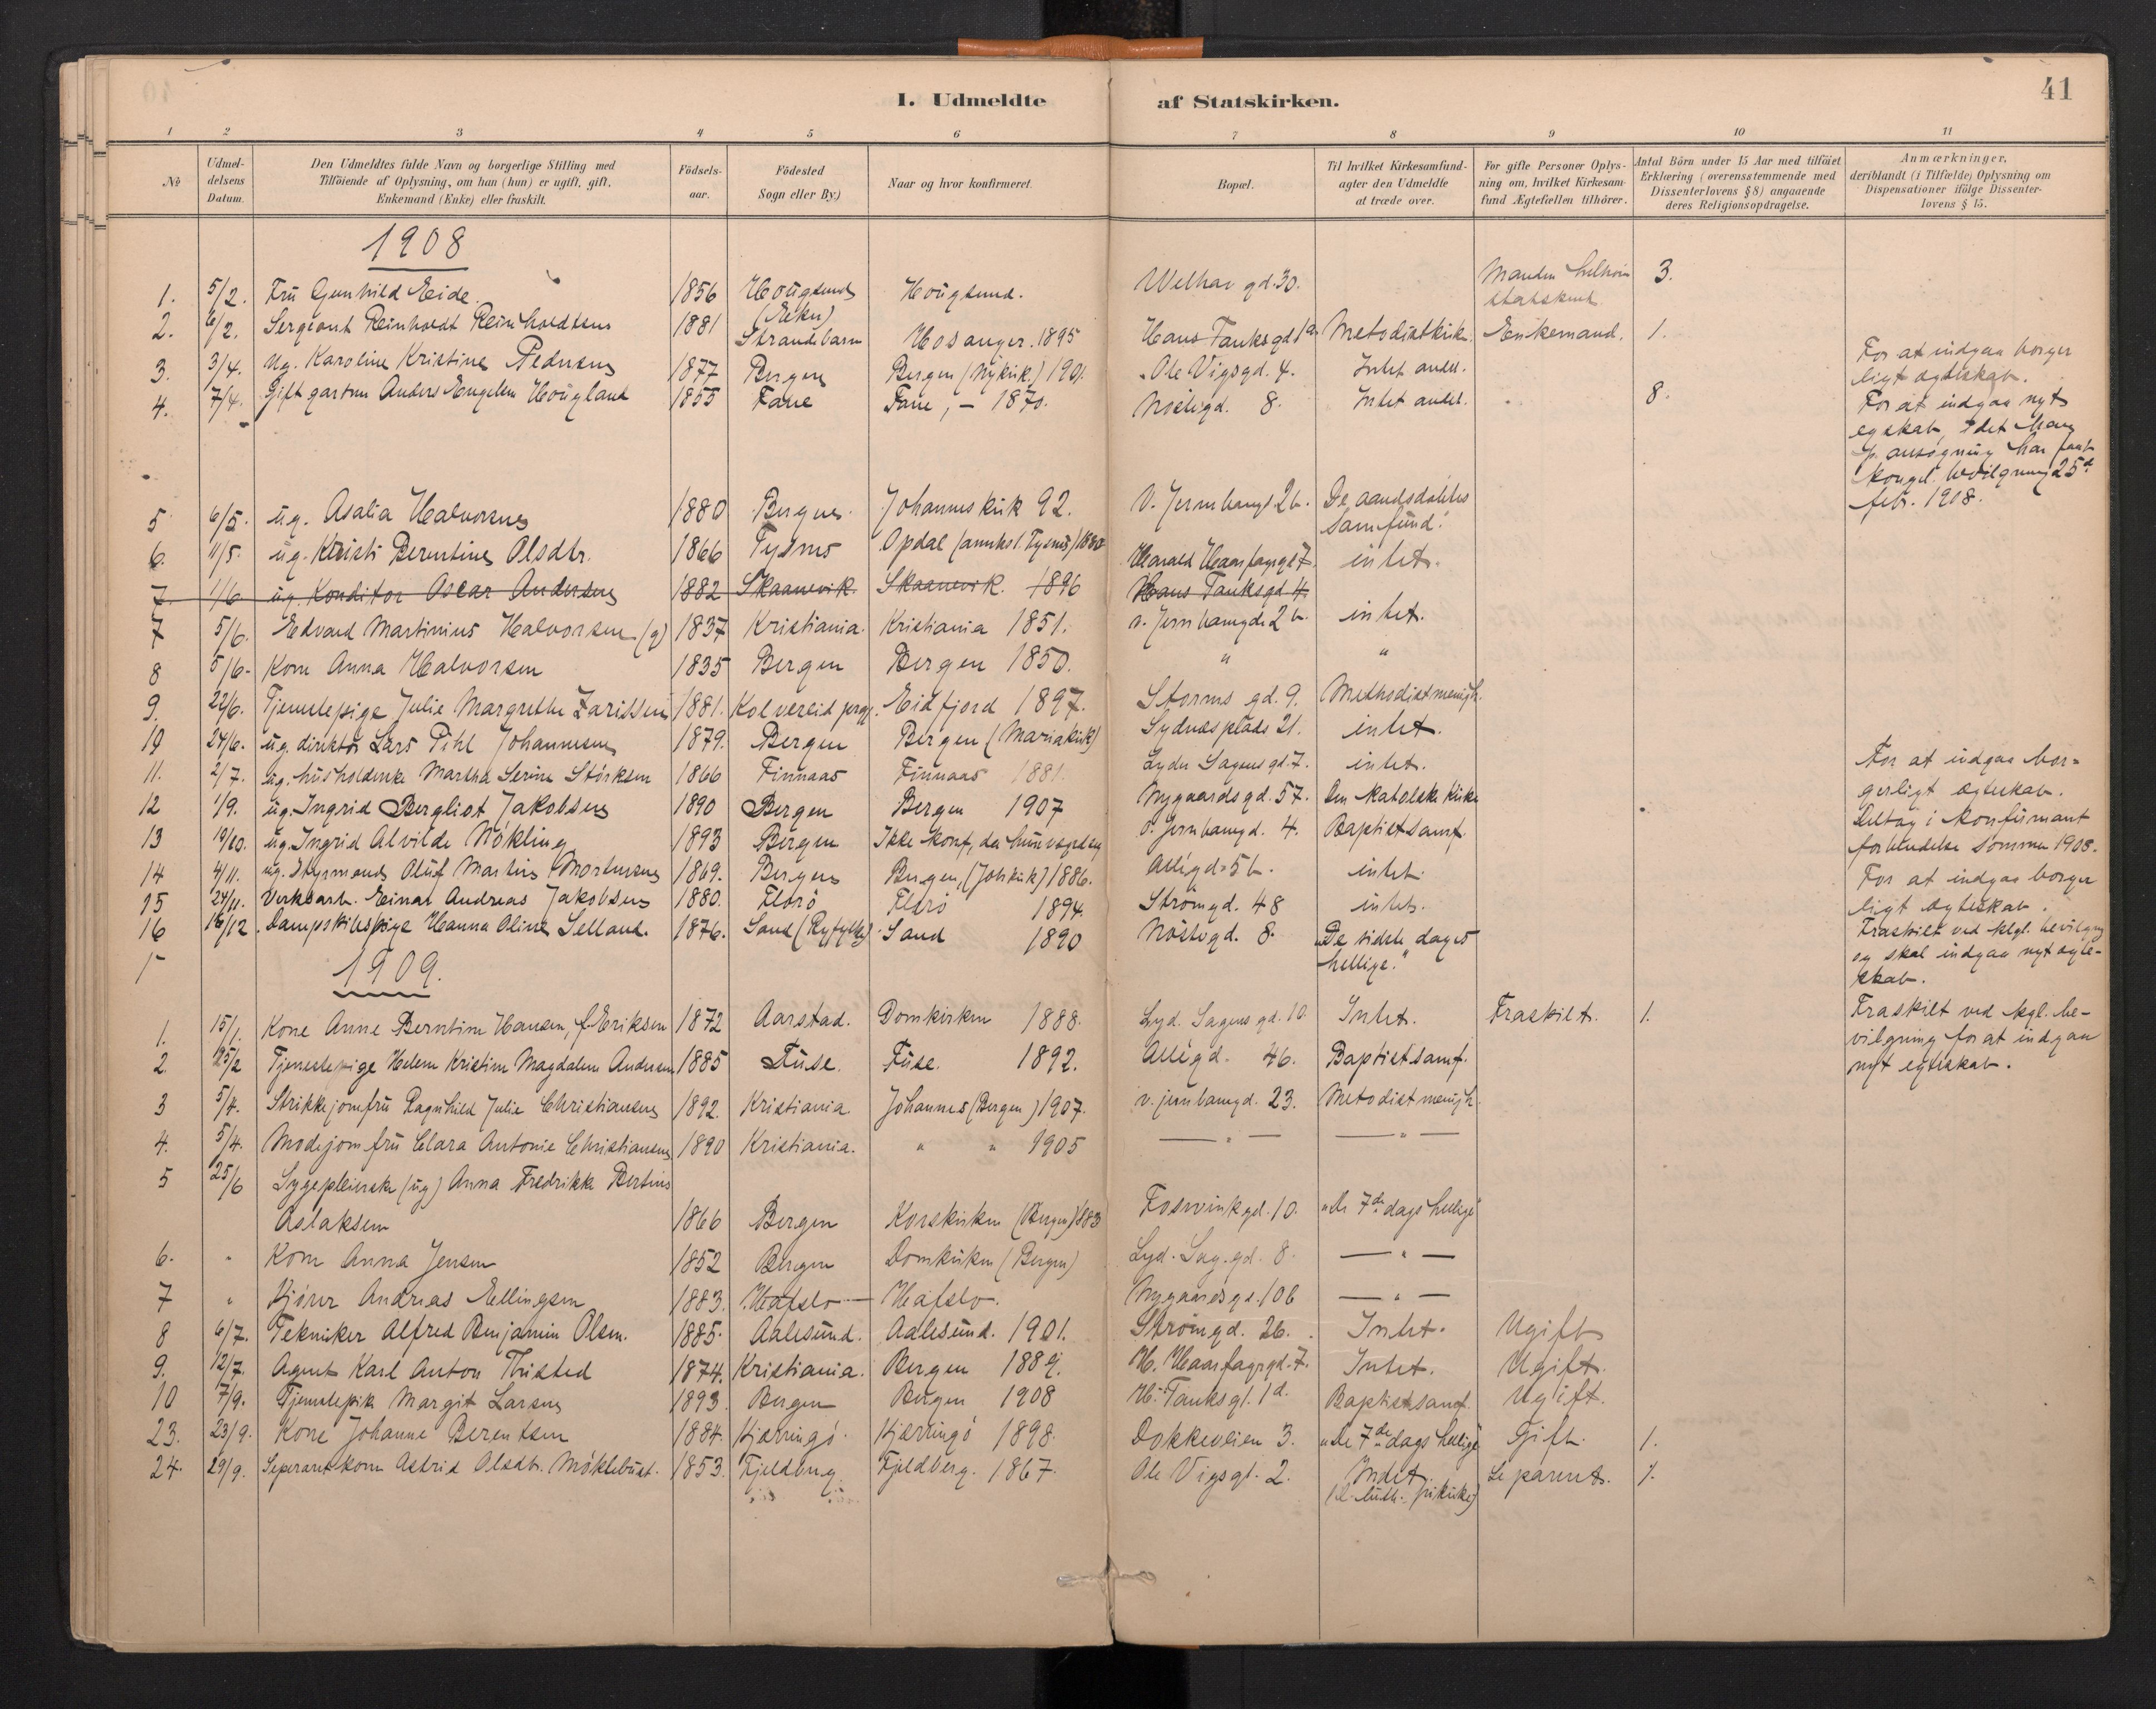 I. Udmeldte af Statskirken. 41
1 2 3 4 5 6 7 8 9 10 11
No
Udmel-
delsens
Datum.
Den Udmeldtes fulde Navn og borgerlige Stilling med
Tilföiende af Oplysning, om han (hun) er ugift, gift,
Enkemand (Enke) eller fraskilt.
Födsels-
aar.
Födested
Sogn eller By.)
Naar og hvor konfirmeret.
Bopæl.
Til hvilket Kirkesamfund-
agter den Udmeldte
at træde over.
For gifte Personer Oplys-
ning om, hvilket Kirkesam-
fund Ægtefællen tilhörer.
Antal Börn under 15 Aar med tilföiet
Erklæring (overensstemmende med
Dissenterlovens § 8) angaaende
deres Religionsopdragelse.
Anmærkninger,
deriblandt (i Tilfælde) Oplysning om
Dispensationer ifölge Dissenter-
lovens § 15.
1908
1. 5/2. Fru Gunhild Eide. 1856 Hougsund (Eker) Hougsund. Welhav gd. 30. Manden tilhører statskirk. 3.
2. 6/2. Sergeant Reinholdt Reinholdtsen 1881 Strandebarm Hosanger. 1895 Hans Tanksgd 1a Metodistkirk. Enkemand. 1.
3. 3/4. ug. Karoline Kristine Pedersen 1877 Bergen Bergen (Nykirk.) 1901. Ole Vigsgd. 4. Intet andet. For at indgaa borger
ligt ægteskab.
4. 7/4. Gift gartner Anders Engelsen Hougland 1855 Fane Fane, – 1870. Nøstegd. 8. Intet andet. 8. For at indgaa nyt
egskab, idet han
p. ansøgning har faat
kongel. bevilgning 25d
febr. 1908.
5 6/5. ug. Asalia Halvorsen 1880 Bergen Johanneskirk 92. V. Jernbanegd. 2b. De aandsdøbtes
Samfund.
6. 11/5. ug. Kristi Berntine Olsdtr. 1866 Tysnes Opdal (annks l. Tysnes) 1880 Harald Haarfagrgd 7. intet.
7. 1/6. ug. Konditor Oscar Andersen 1882 Skaanevik. Skaanevik. 1896 Hans Tanksgd 4.
7 5/6. Edvard Martinius Halvorsen (g) 1837 Kristiania. Kristiania 1851. v. Jernbanegd. 2b. intet.
8 5/6. Kone Anna Halvorsen 1835 Bergen Bergen 1850. " "
9. 22/6. Tjenestepige Julie Margrethe Zarissen 1881. Kolvereid prgj. Eidfjord 1897. Storms gd. 9. Methodistmenigh.
10 24/6. ug. direktør Lars Pihl Johannesen 1879. Bergen Bergen (Mariakirk) Sydnæsplads 21. intet.
11. 2/7. ug. husholderske Martha Serine Störksen 1866 Finnaas Finnaas 1881. Lyder Sagens gd. 7. intet. For at indgaa bor-
gerligt ægteskab.
12 1/9. ug. Ingrid Bergliot Jakobsen 1890 Bergen Bergen 1907 Nygaardsgd. 57. Den katolske kirke
13 19/10. ug. Ingrid Alvilde Nökling 1893 Bergen Ikke konf, da v. jernbanegd. 4. Baptistsamf. Deltog i konfirmant
forberedelse Sommer 1908.
14 4/11. ug. Styrmand Oluf Martin Mortensen 1869. Bergen Bergen, (Johskirk) 1886. Allégd. 5b. intet. For at indgaa borger
ligt ægteskab.
15 24/11. Verksarb. Einar Andreas Jakobsen 1880. Florö Florö 1894. Strömgd. 48 intet.
16 16/12. Dampskibspige Hanna Oline Selland. 1876. Sand (Ryfylke) Sand 1890 Nöstegd. 8. "De sidste dages
hellige." Fraskilt ved kgl. bevilgng
og skal indgaa nyt ægte-
skab.
1909.
1. 15/1. Kone Anne Berntine Hansen, f. Eriksen 1872 Aarstad. Domkirken 1888. Lyd. Sagens gd. 10. Intet. Fraskilt. 1. Fraskilt ved kgl. be-
vilgning for at indgaa
nyt egteskab.
2. 25/2 Tjenestepige Helene Kristine Magdalene Andersen 1885 Fuse. Fuse. 1892. Allégd. 46. Baptistsamf.
3 5/4. Strikkejomfru Ragnhild Julie Christiansen 1892. Kristiania. Johannes (Bergen) 1907. v. jernbanegd. 23. Metodistmenigh.
4. 5/4. Modejomfru Clara Antonie Christiansen 1890 Kristiania. " " 1905 — " — — " —
5 25/6 Sygepleierske (ug) Anna Fredrikke Bertine
Aslaksen 1866 Bergen Korskirken (Bergen) 1883 Foswinkgd. 10. "De 7de dags hellige"
6. " Kone Anna Jensen 1852 Bergen Domkirken (Bergen) Lyd. Sag. gd. 8. — " —
7 " Kjörer Andreas Ellingsen 1883. Hafslo Hafslo. Nygaardsgd. 106 — " —
8 6/7. Tekniker Alfred Benjamin Olsen. 1885. Aalesund. Aalesund. 1901. Strömgd. 26. Intet. Ugift
9. 12/7. Agent Karl Anton Thisted 1874. Kristiania. Bergen 1889. H. Haarfagrgd. 7. Intet. Ugift.
10 7/9. Tjenestepik Margit Larsen 1893. Bergen Bergen 1908 H. Tanksgt. 1d. Baptistsamf. Ugift.
23. 23/9. Kone Johanne Berentsen 1884. Kjærringö. Kjærringö 1898. Dokkeveien 3. "De 7de dags hellige Gift. 1.
24. 29/9. Seperaretkone Astrid Olsdtr. Möklebust. 1853. Fjeldberg. Fjeldberg. 1867. Ole Vigsgt. 2. Intet. Seperaret. 1.